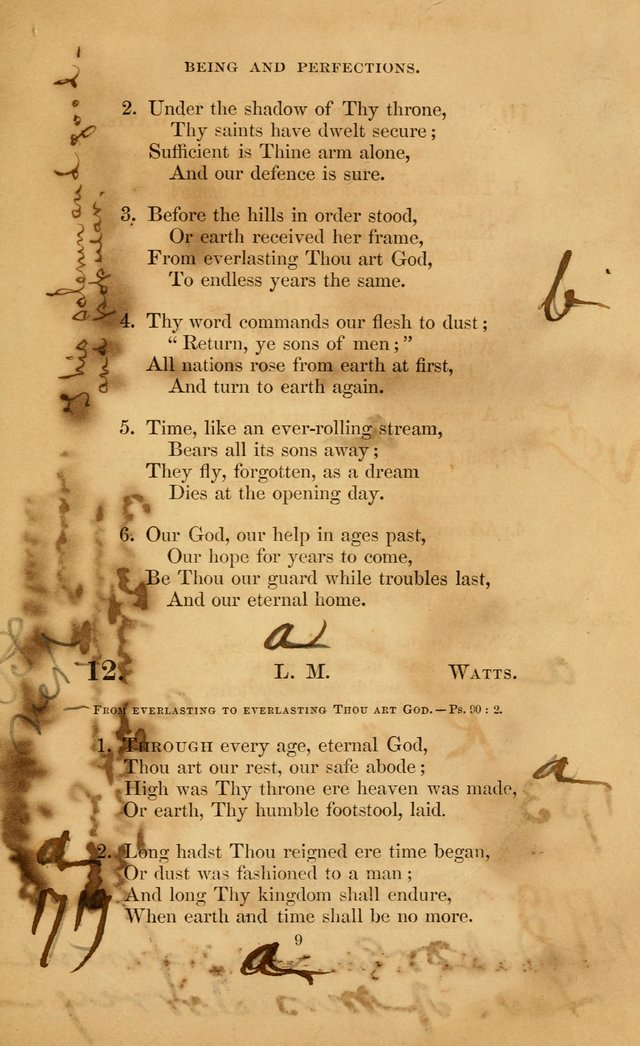 BEING AND PERFECTIONS.
2. Under the shadow of Thy throne,
Thy saints have dwelt secure;
Sufficient is Thine arm alone,
And our defence is sure.
3. Before the hills in order stood,
Or earth received her frame,
From everlasting Thou art God,
To endless years the same.
4. Thy word commands our flesh to dust;
"Return, ye sons of men;"
All nations rose from earth at first,
And turn to earth again.
5. Time, like an ever-rolling stream,
Bears all its sons away;
They fly, forgotten, as a dream
Dies at the opening day.
6. Our God, our help in ages past,
Our hope for years to come,
Be Thou our guard while troubles last,
And our eternal home.
a
12. L. M. WATTS.
FROM EVERLASTING TO EVERLASTING THOU ART GOD.—Ps. 90 : 2.
1. THROUGH every age, eternal God,
Thou art our rest, our safe abode;
High was Thy throne ere heaven was made,
Or earth, Thy humble footstool, laid.
2. Long hadst Thou reigned ere time began,
Or dust was fashioned to a man;
And long Thy kingdom shall endure,
When earth and time shall be no more.
9
a
b
a
a
1719
his solemn and good
and popular,